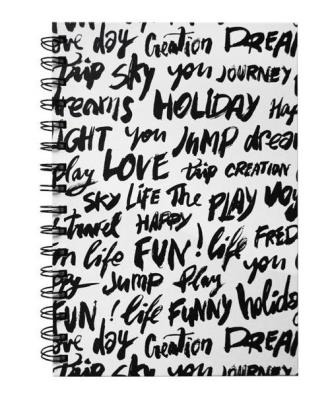 day Creation DREAM
trip Sky you JOURNEY
dreams HOLIDAY
you JUMP dream
play LOVE trip CREATION
SKY LIFE The PLAY
travel HAPPY
life FUN! life
Jump Play you
FUN! life FUNNY holiday
day Creation DREAM
trip Sky you JOURNEY